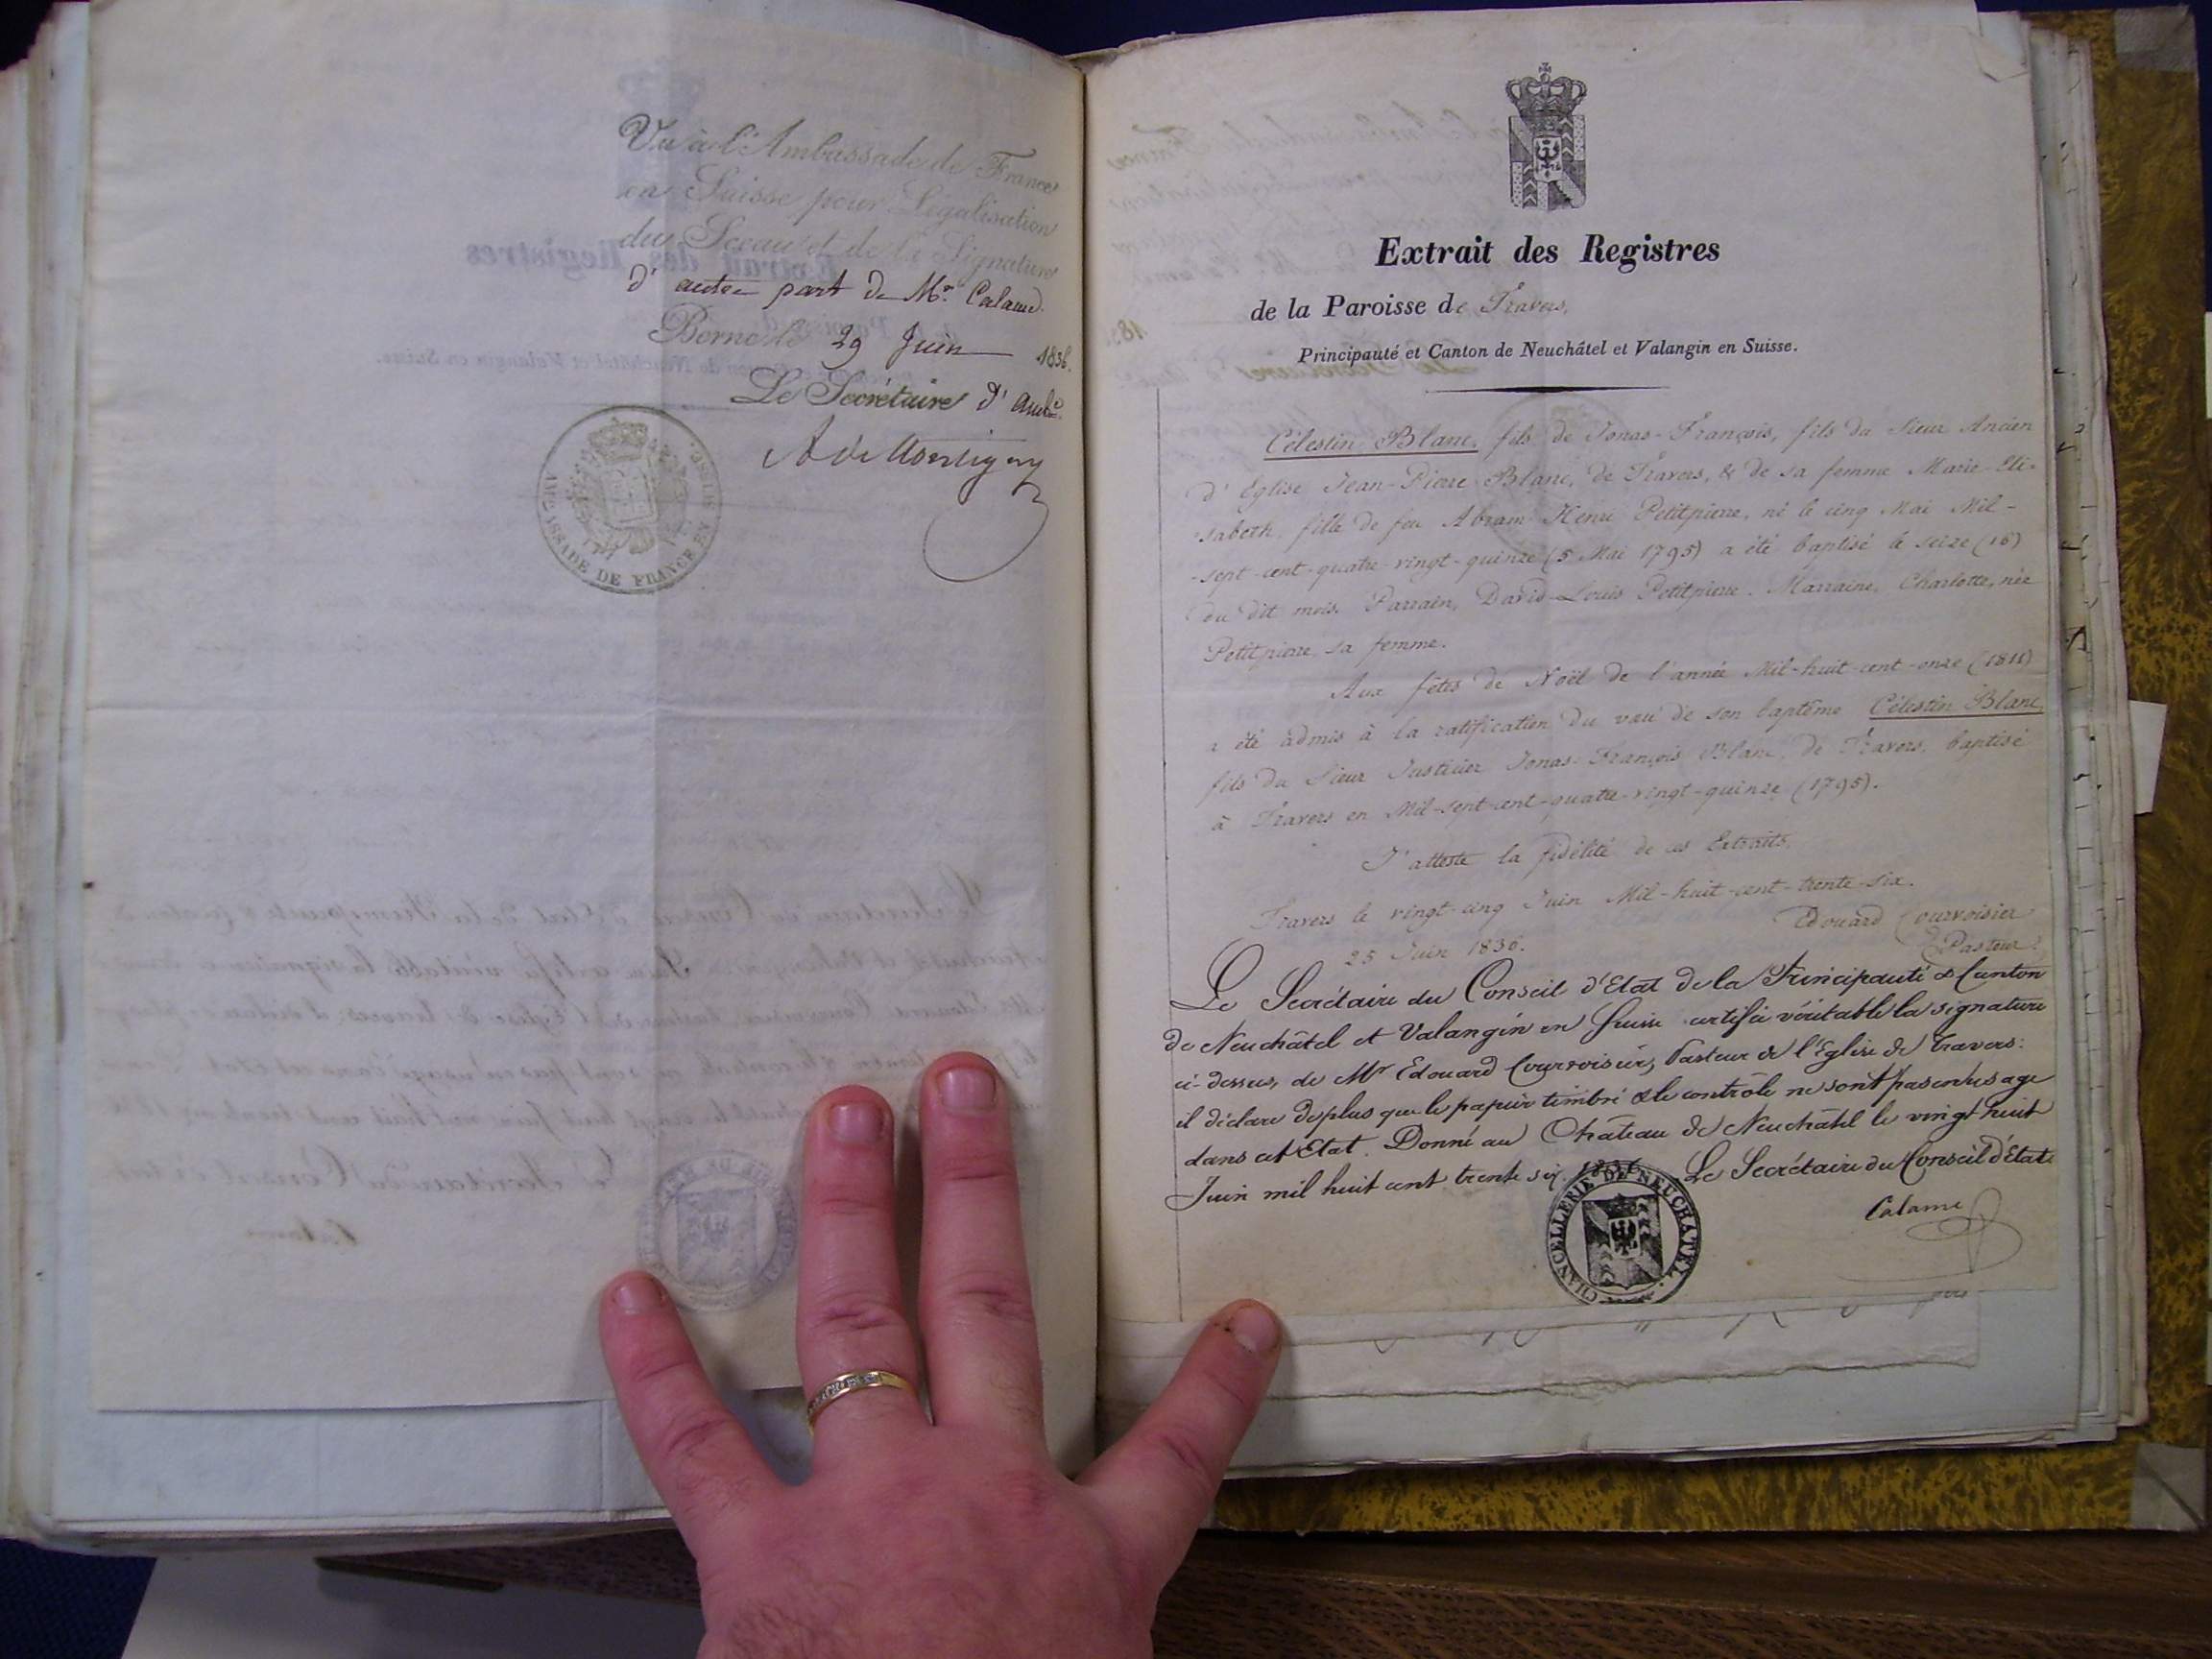 Vu à l'Ambassade de France
en Suisse pour Légalisation
du Sceau et de la Signature
d'autre part de Mr. Calame.
Berne le 29 Juin 1836.
Le Secrétaire d'Ambe.
AMBASSADE DE FRANCE EN SUISSE.
Extrait des Registres
de la Paroisse de Travers,
Principauté et Canton de Neuchâtel et Valangin en Suisse.
Célestin Blanc, fils de Jonas-François, fils du Sieur Ancien
d'Eglise Jean-Pierre Blanc, de Travers, & de sa femme Marie-Eli-
-sabeth, fille de feu Abram-Henri Petitpierre, né le cinq Mai Mil-
-sept-cent-quatre-vingt-quinze (5 Mai 1795) a été baptisé le seize (16)
du dit mois. Parrain, David-Louis Petitpierre. Marraine, Charlotte, née
Petitpierre, sa femme.
Aux fêtes de Noël de l'année Mil-huit-cent-onze (1811)
a été admis à la ratification du vœu de son baptême Célestin Blanc,
fils du Sieur Justicier Jonas-François Blanc, de Travers, baptisé
à Travers en Mil-sept-cent-quatre-vingt-quinze (1795).
J'atteste la fidélité de ces Extraits.
Travers le vingt-cinq Juin Mil-huit-cent-trente-six.
25 Juin 1836.
Edouard Courvoisier
Pasteur
Le Secrétaire du Conseil d'Etat de la Principauté & Canton
de Neuchâtel et Valangin en Suisse certifie véritable la signature
ci-dessus, de Mr Edouard Courvoisier, Pasteur de l'Eglise de Travers:
il déclare de plus que le papier timbré & le contrôle ne sont pas en usage
dans cet Etat. Donné au Château de Neuchâtel le vingt huit
Juin mil huit cent trente six. 1836. Le Secrétaire du Conseil d'Etat.
Calame
CHANCELLERIE DE NEUCHATEL